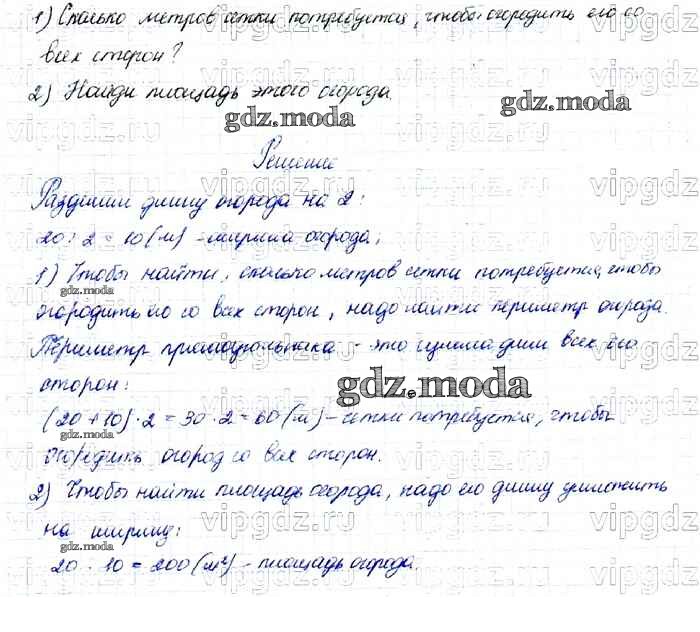 1) Сколько метров сетки потребуется, чтобы огородить его со
всех сторон?
2) Найди площадь этого огорода.
Решение
Разделим длину огорода на 2:
20 : 2 = 10 (м) - ширина огорода;
1) Чтобы найти, сколько метров сетки потребуется, чтобы
огородить его со всех сторон, надо найти периметр огорода.
Периметр прямоугольника - это сумма длин всех его
сторон:
(20 + 10) · 2 = 30 · 2 = 60 (м) - сетки потребуется, чтобы
огородить огород со всех сторон.
2) Чтобы найти площадь огорода, надо его длину умножить
на ширину:
20 · 10 = 200 (м²) - площадь огорода.
gdz.moda
gdz.moda
gdz.moda
gdz.moda
gdz.moda
gdz.moda
gdz.moda
vipgdz.ru